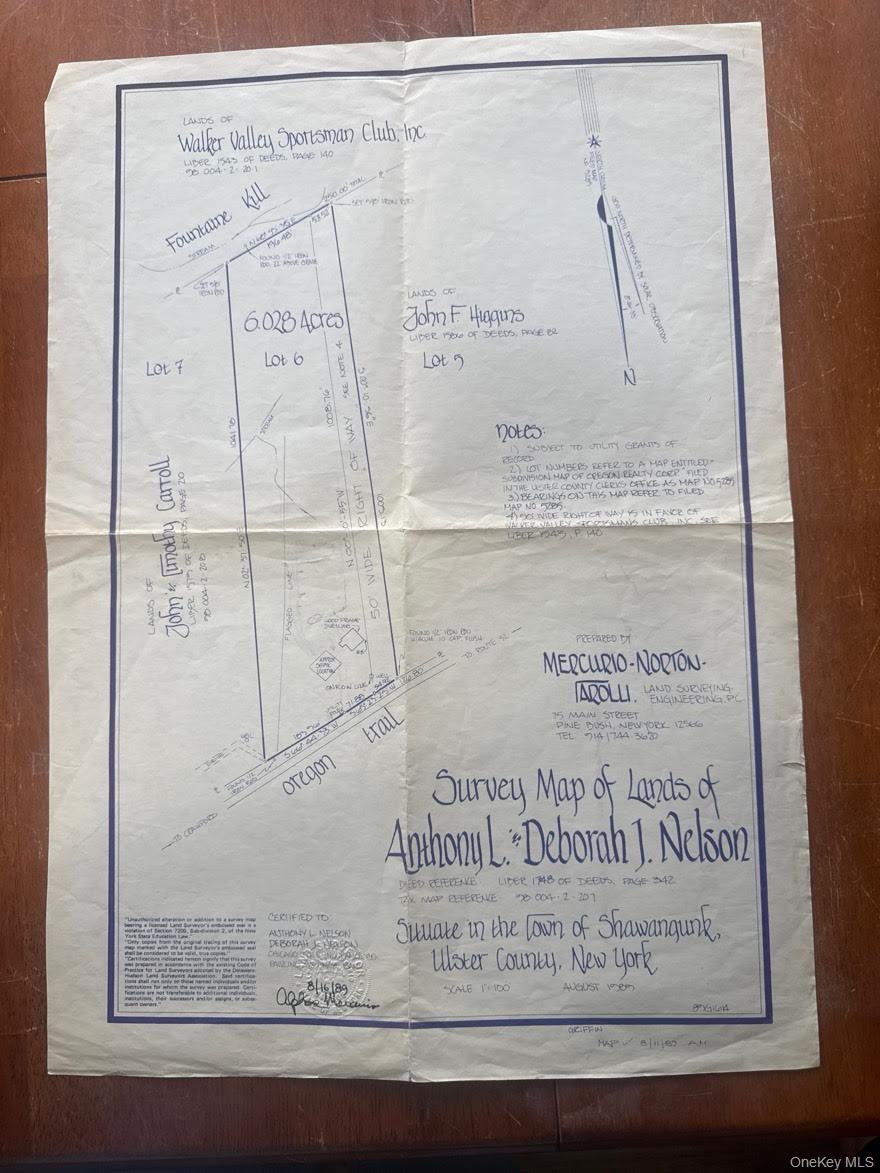 LANDS OF
Walker Valley Sportsman Club, Inc
LIBER 1543 OF DEEDS, PAGE 140
98.004-2-20.1
Fountaine Kill
STREAM
250.00' TOTAL
SET 5/8 IRON ROD
196.48'
53.52
FOUND 1/2" IRON
SET 5/8
IRON ROD
6.028 Acres
Lot 6
Lot 7
LANDS OF
John F. Higgins
LIBER 1586 OF DEEDS, PAGE 82
Lot 5
1041.78'
N 02°-57'-50" E
STREAM
FLAGGED LINE
1008.76'
50' WIDE RIGHT OF WAY SEE NOTE 4
LANDS OF
John & Timothy Carroll
LIBER 1575 OF DEEDS, PAGE 20
WOOD FRAME
DWELLING
APPROX
SEPTIC
LOCATION
FOUND 1/2" IRON ROD
TO ROUTE 52
183.36
oregon trail
TO CRAWFORD
N
notes:
1) SUBJECT TO UTILITY GRANTS OF
RECORD
2) LOT NUMBERS REFER TO A MAP ENTITLED "
SUBDIVISION MAP OF OREGON REALTY CORP" FILED
IN THE ULSTER COUNTY CLERKS OFFICE AS MAP NO. 5285
3) BEARINGS ON THIS MAP REFER TO FILED
MAP NO. 5285.
4) 50' WIDE RIGHT OF WAY IS IN FAVOR OF
WALKER VALLEY SPORTSMANS CLUB, INC. SEE
LIBER 1543, P. 140
PREPARED BY
MERCURIO-NORTON-
TAROLLI, LAND SURVEYING
ENGINEERING, P.C.
75 MAIN STREET
PINE BUSH, NEW YORK 12566
TEL 914/744-3620
Survey Map of Lands of
Anthony L. & Deborah J. Nelson
DEED REFERENCE LIBER 1748 OF DEEDS, PAGE 342
TAX MAP REFERENCE 98.004-2-20.7
Situate in the Town of Shawangunk,
Ulster County, New York
SCALE 1"=100' AUGUST 1989
"Unauthorized alteration or addition to a survey map
bearing a licensed Land Surveyor's embossed seal is a
violation of Section 7209, Sub-division 2, of the New
York State Education Law."
"Only copies from the original tracing of this survey
map marked with the Land Surveyor's embossed seal
shall be considered to be valid, true copies."
"Certifications indicated hereon signify that this survey
was prepared in accordance with the existing Code of
Practice for Land Surveyors adopted by the Delaware
Hudson Land Surveyors Association. Said certifica-
tions shall run only to those named individuals and/or
institutions for whom the survey was prepared. Certi-
fications are not transferable to additional individuals,
institutions, their successors and/or assigns, or subse-
quent owners."
CERTIFIED TO:
ANTHONY L. NELSON
DEBORAH J. NELSON
8/16/89
GRIFFIN
MAP ✓ 8/11/89 AM
OneKey MLS